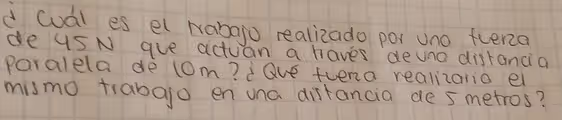 ¿ Cuál es el trabajo realizado por uno fuerza
de 45N que actuán a través de uno distancia
paralela de 10m? ¿Qué fuerza realizaria el
mismo trabajo en una distancia de 5 metros?